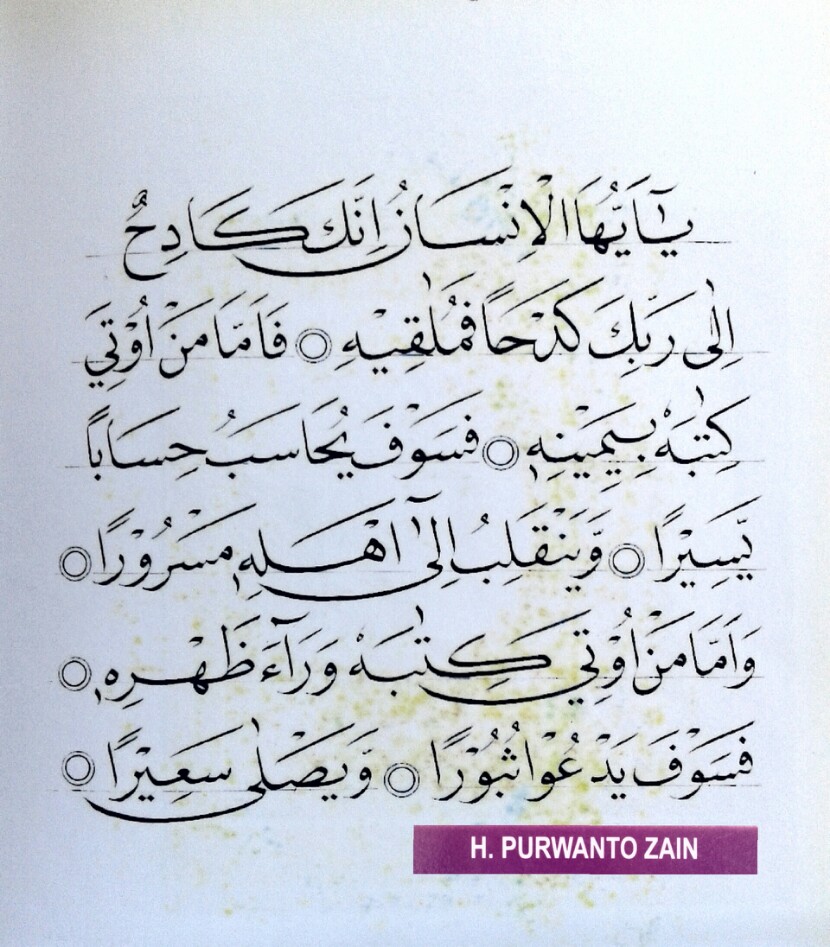 يٰٓاَيُّهَا الْاِنْسَانُ اِنَّكَ كَادِحٌ
اِلٰى رَبِّكَ كَدْحًا فَمُلٰقِيْهِ ۝ فَاَمَّا مَنْ اُوْتِيَ
كِتٰبَهٗ بِيَمِيْنِهٖ ۝ فَسَوْفَ يُحَاسَبُ حِسَابًا
يَّسِيْرًا ۝ وَّيَنْقَلِبُ اِلٰٓى اَهْلِهٖ مَسْرُوْرًا ۝
وَاَمَّا مَنْ اُوْتِيَ كِتٰبَهٗ وَرَآءَ ظَهْرِهٖ ۝
فَسَوْفَ يَدْعُوْا ثُبُوْرًا ۝ وَّيَصْلٰى سَعِيْرًا ۝
H. PURWANTO ZAIN